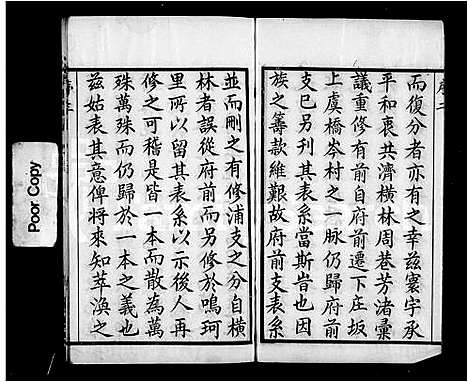 序二
而復分者亦有之幸茲寰宇承
平和衷共濟橫林周巷芳渚彙
議重修有前自府前遷下庄坂
上虞橋岑村之一脉仍歸府前
支已另刊其表系當斯旹也因
族之籌款維艱故府前支表系
並而刪之有修浦支之分自橫
林者誤從府前而另修於鳴珂
里所以留其表系以示後人再
修之可稽是皆一本而散為萬
殊萬殊而仍歸於一本之義也
茲姑表其意俾將來知萃渙之
Poor Copy